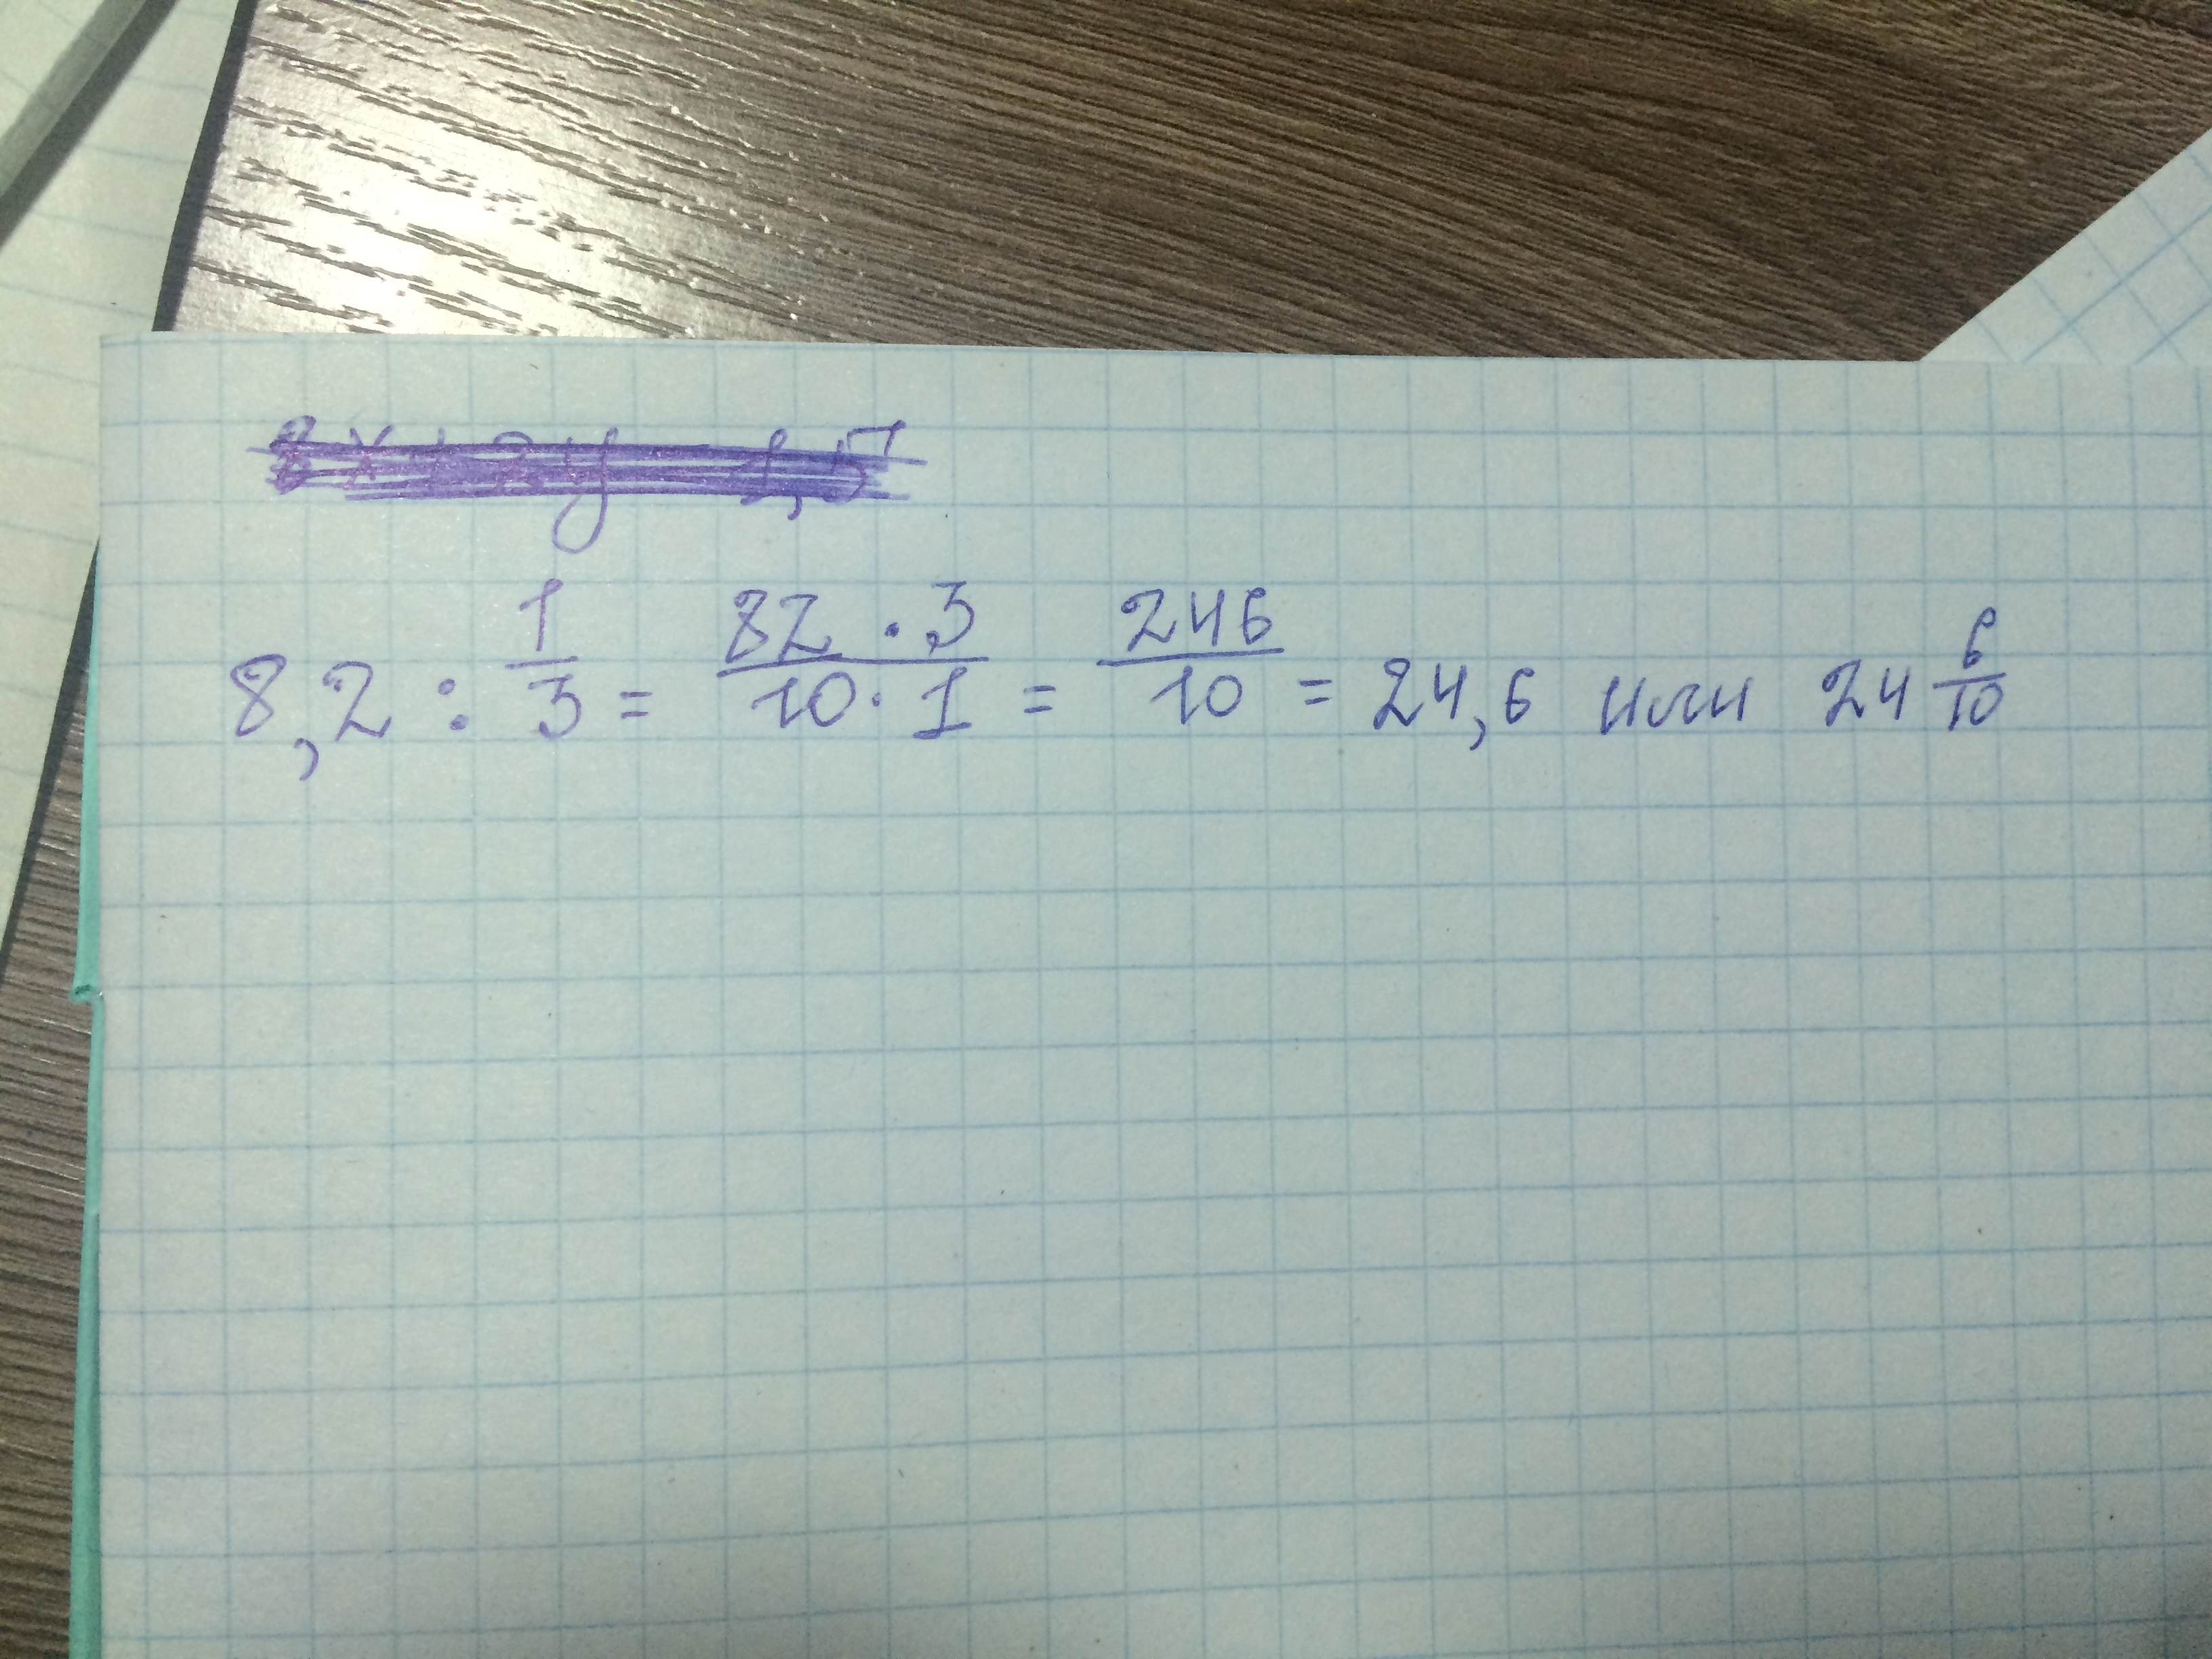 8,2 : 1/3 = 82 · 3 / 10 · 1 = 246/10 = 24,6 или 24 6/10